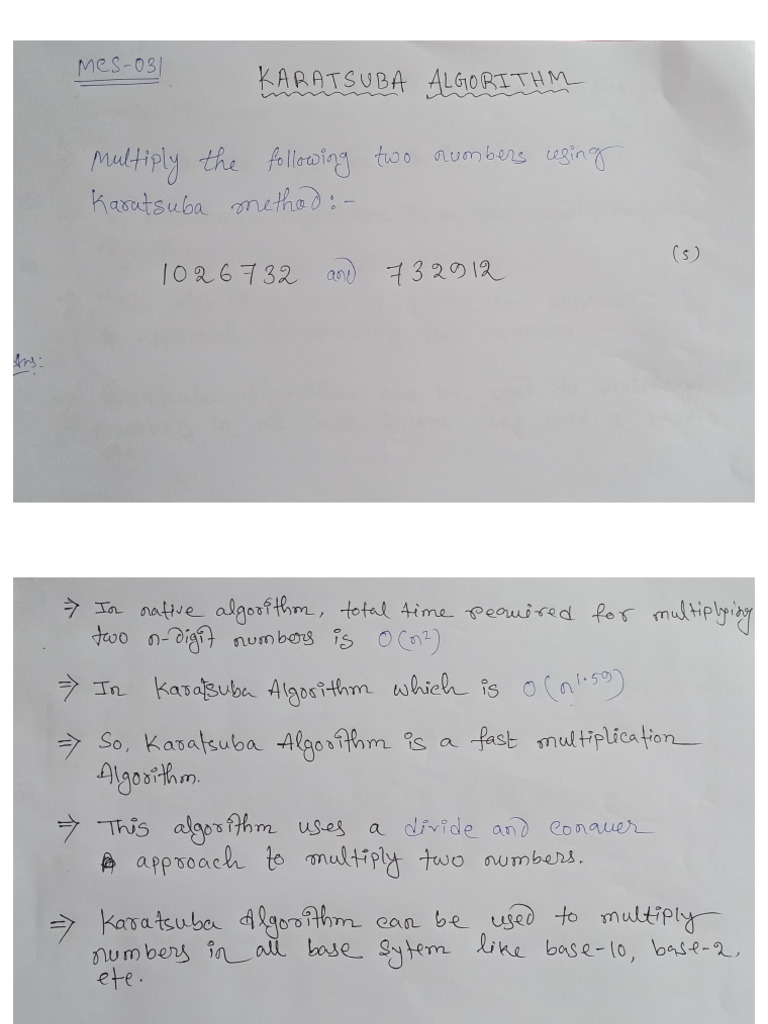 MCS-031
KARATSUBA ALGORITHM
Multiply the following two numbers using
Karatsuba method:-
1026732 and 732912
(5)
Ans:
⇒ In native algorithm, total time required for multiplying
two n-digit numbers is O(n²)
⇒ In Karatsuba Algorithm which is O(n^1.59)
⇒ So, Karatsuba Algorithm is a fast multiplication
Algorithm.
⇒ This algorithm uses a divide and conquer
approach to multiply two numbers.
⇒ Karatsuba Algorithm can be used to multiply
numbers in all base Sytem like base-10, base-2,
etc.